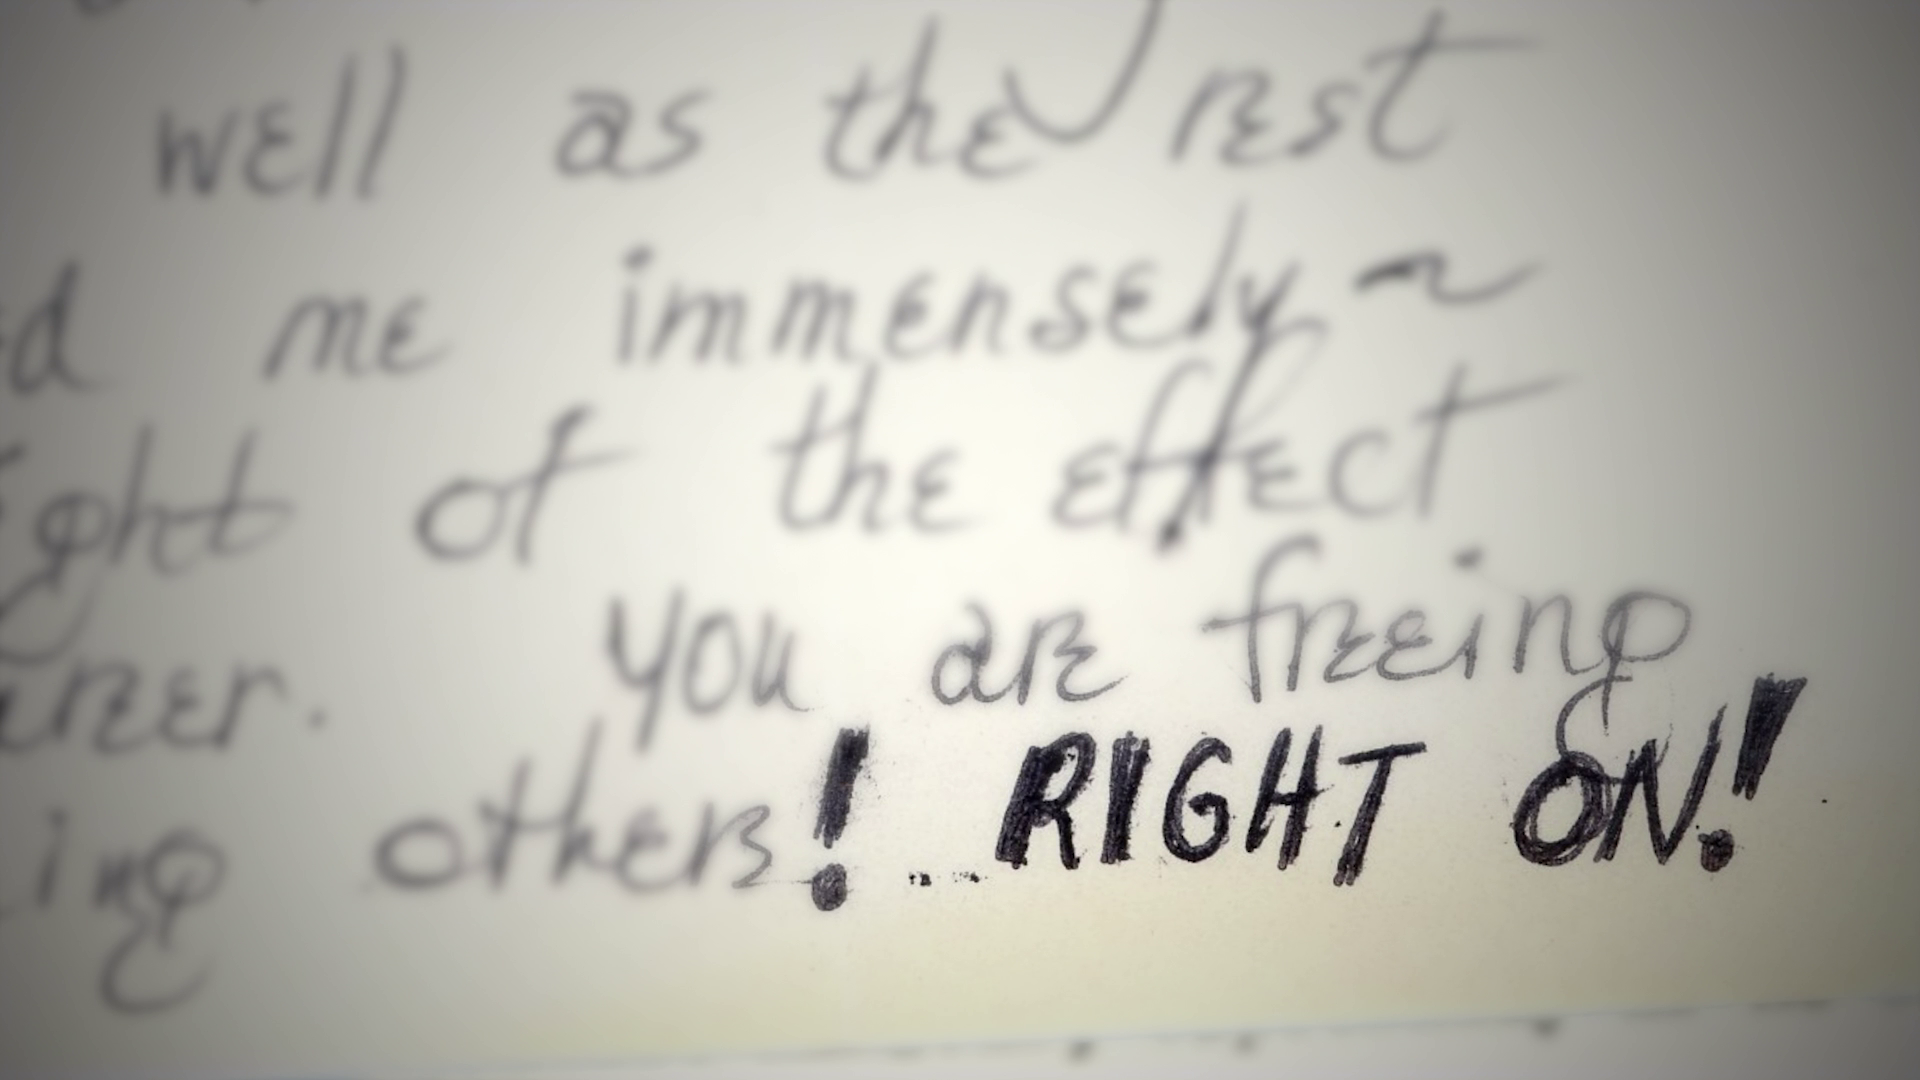 well as the rest
d me immensely ~
ght of the effect
you are freeing
ing others! RIGHT ON!